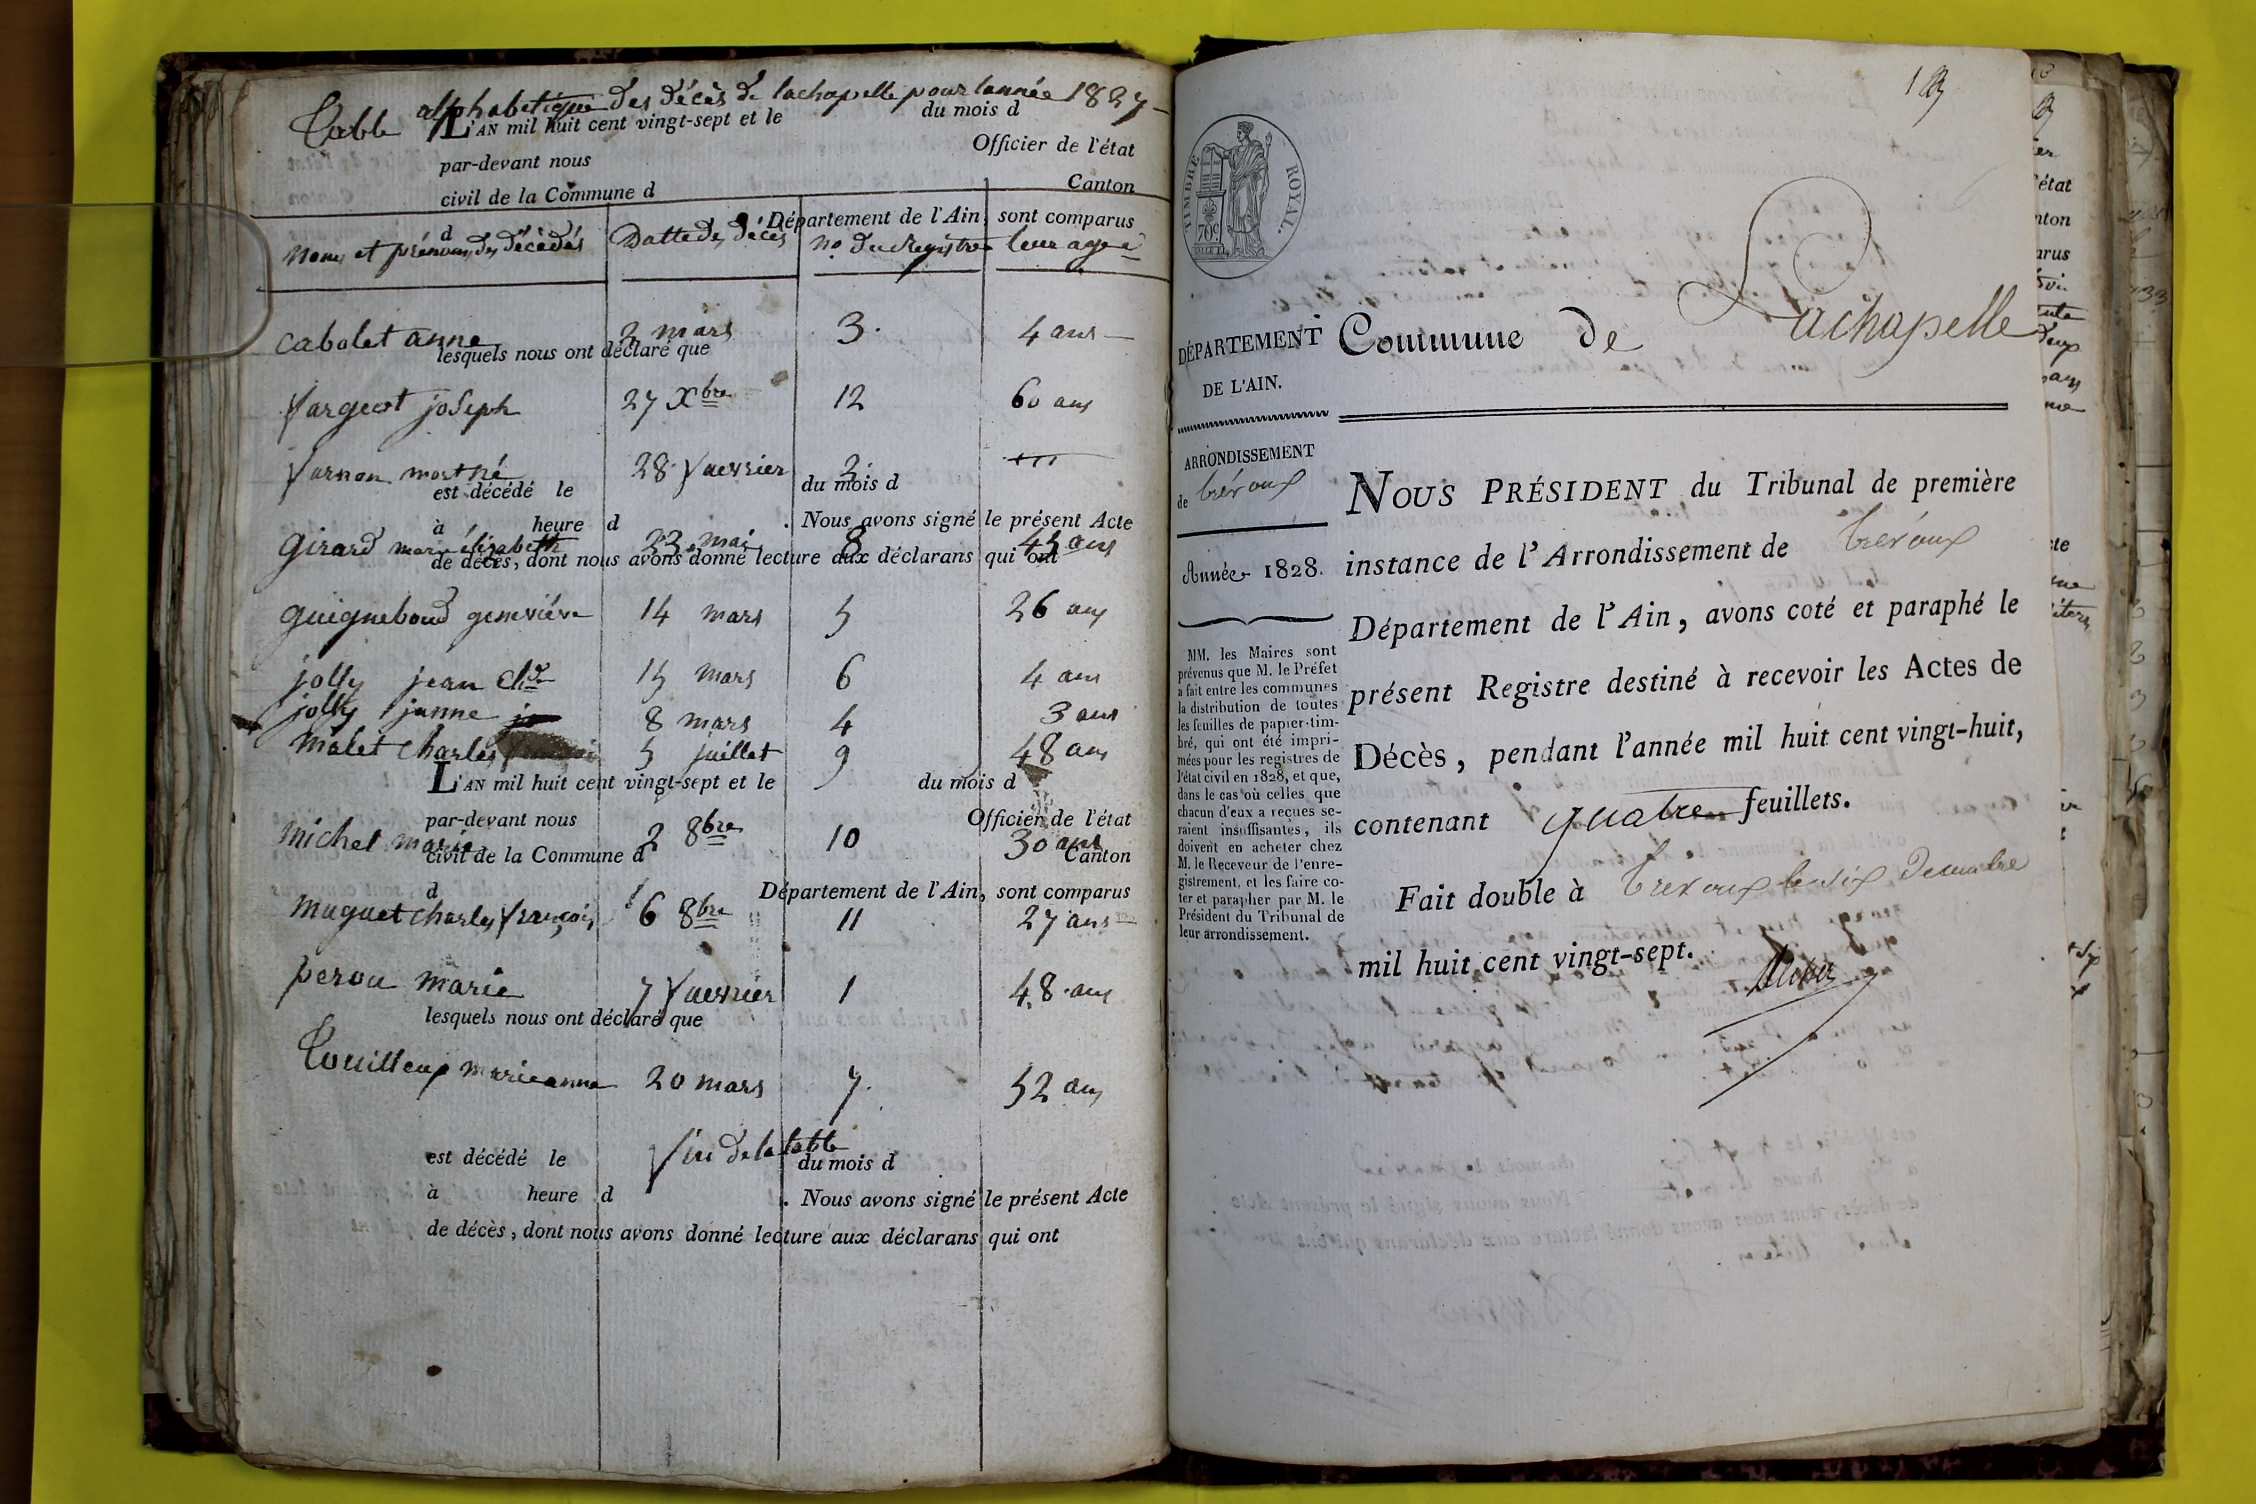 Table alphabetique des décès de lachapelle pour lannée 1827
L'AN mil huit cent vingt-sept et le du mois d
par-devant nous Officier de l'état
civil de la Commune d Canton
d Département de l'Ain, sont comparus
Noms et prénoms des décédés Datte des décès No. du Registre leur age
cabolet anne 2 mars 3. 4 ans
lesquels nous ont déclaré que
fargeot joseph 27 Xbre 12 60 ans
farnon mort né 28 fuevrier 2
est décédé le du mois d
à heure d . Nous avons signé le présent Acte
girard marie élizabeth 23 mai 8 45 ans
de décès, dont nous avons donné lecture aux déclarans qui ont
guigneboud geneviéve 14 mars 5 26 ans
jolly jean Cl.de 15 mars 6 4 ans
jolly janne 8 mars 4 3 ans
malet charles 5 juillet 9 48 ans
L'AN mil huit cent vingt-sept et le du mois d
par-devant nous Officier de l'état
michel marie 2 8bre 10 30 ans
civil de la Commune d Canton
d Département de l'Ain, sont comparus
muguet charles françois 6 8bre 11 27 ans
perou marie 7 fuevrier 1 48 ans
lesquels nous ont déclaré que
Touilleux marieanne 20 mars 7. 52 ans
fin de la table
est décédé le du mois d
à heure d . Nous avons signé le présent Acte
de décès, dont nous avons donné lecture aux déclarans qui ont
TIMBRE ROYAL.
70c.
DÉPARTEMENT
DE L'AIN.
ARRONDISSEMENT
de trévoux
Année 1828.
MM. les Maires sont
prévenus que M. le Préfet
a fait entre les communes
la distribution de toutes
les feuilles de papier tim-
bré, qui ont été impri-
mées pour les registres de
l'état civil en 1828, et que,
dans le cas où celles que
chacun d'eux a reçues se-
raient insuffisantes, ils
doivent en acheter chez
M. le Receveur de l'enre-
gistrement, et les faire co-
ter et parapher par M. le
Président du Tribunal de
leur arrondissement.
Commune de Lachapelle
NOUS PRÉSIDENT du Tribunal de première
instance de l'Arrondissement de trévoux
Département de l'Ain, avons coté et paraphé le
présent Registre destiné à recevoir les Actes de
Décès, pendant l'année mil huit cent vingt-huit,
contenant quatre feuillets.
Fait double à trevoux le six decembre
mil huit cent vingt-sept.